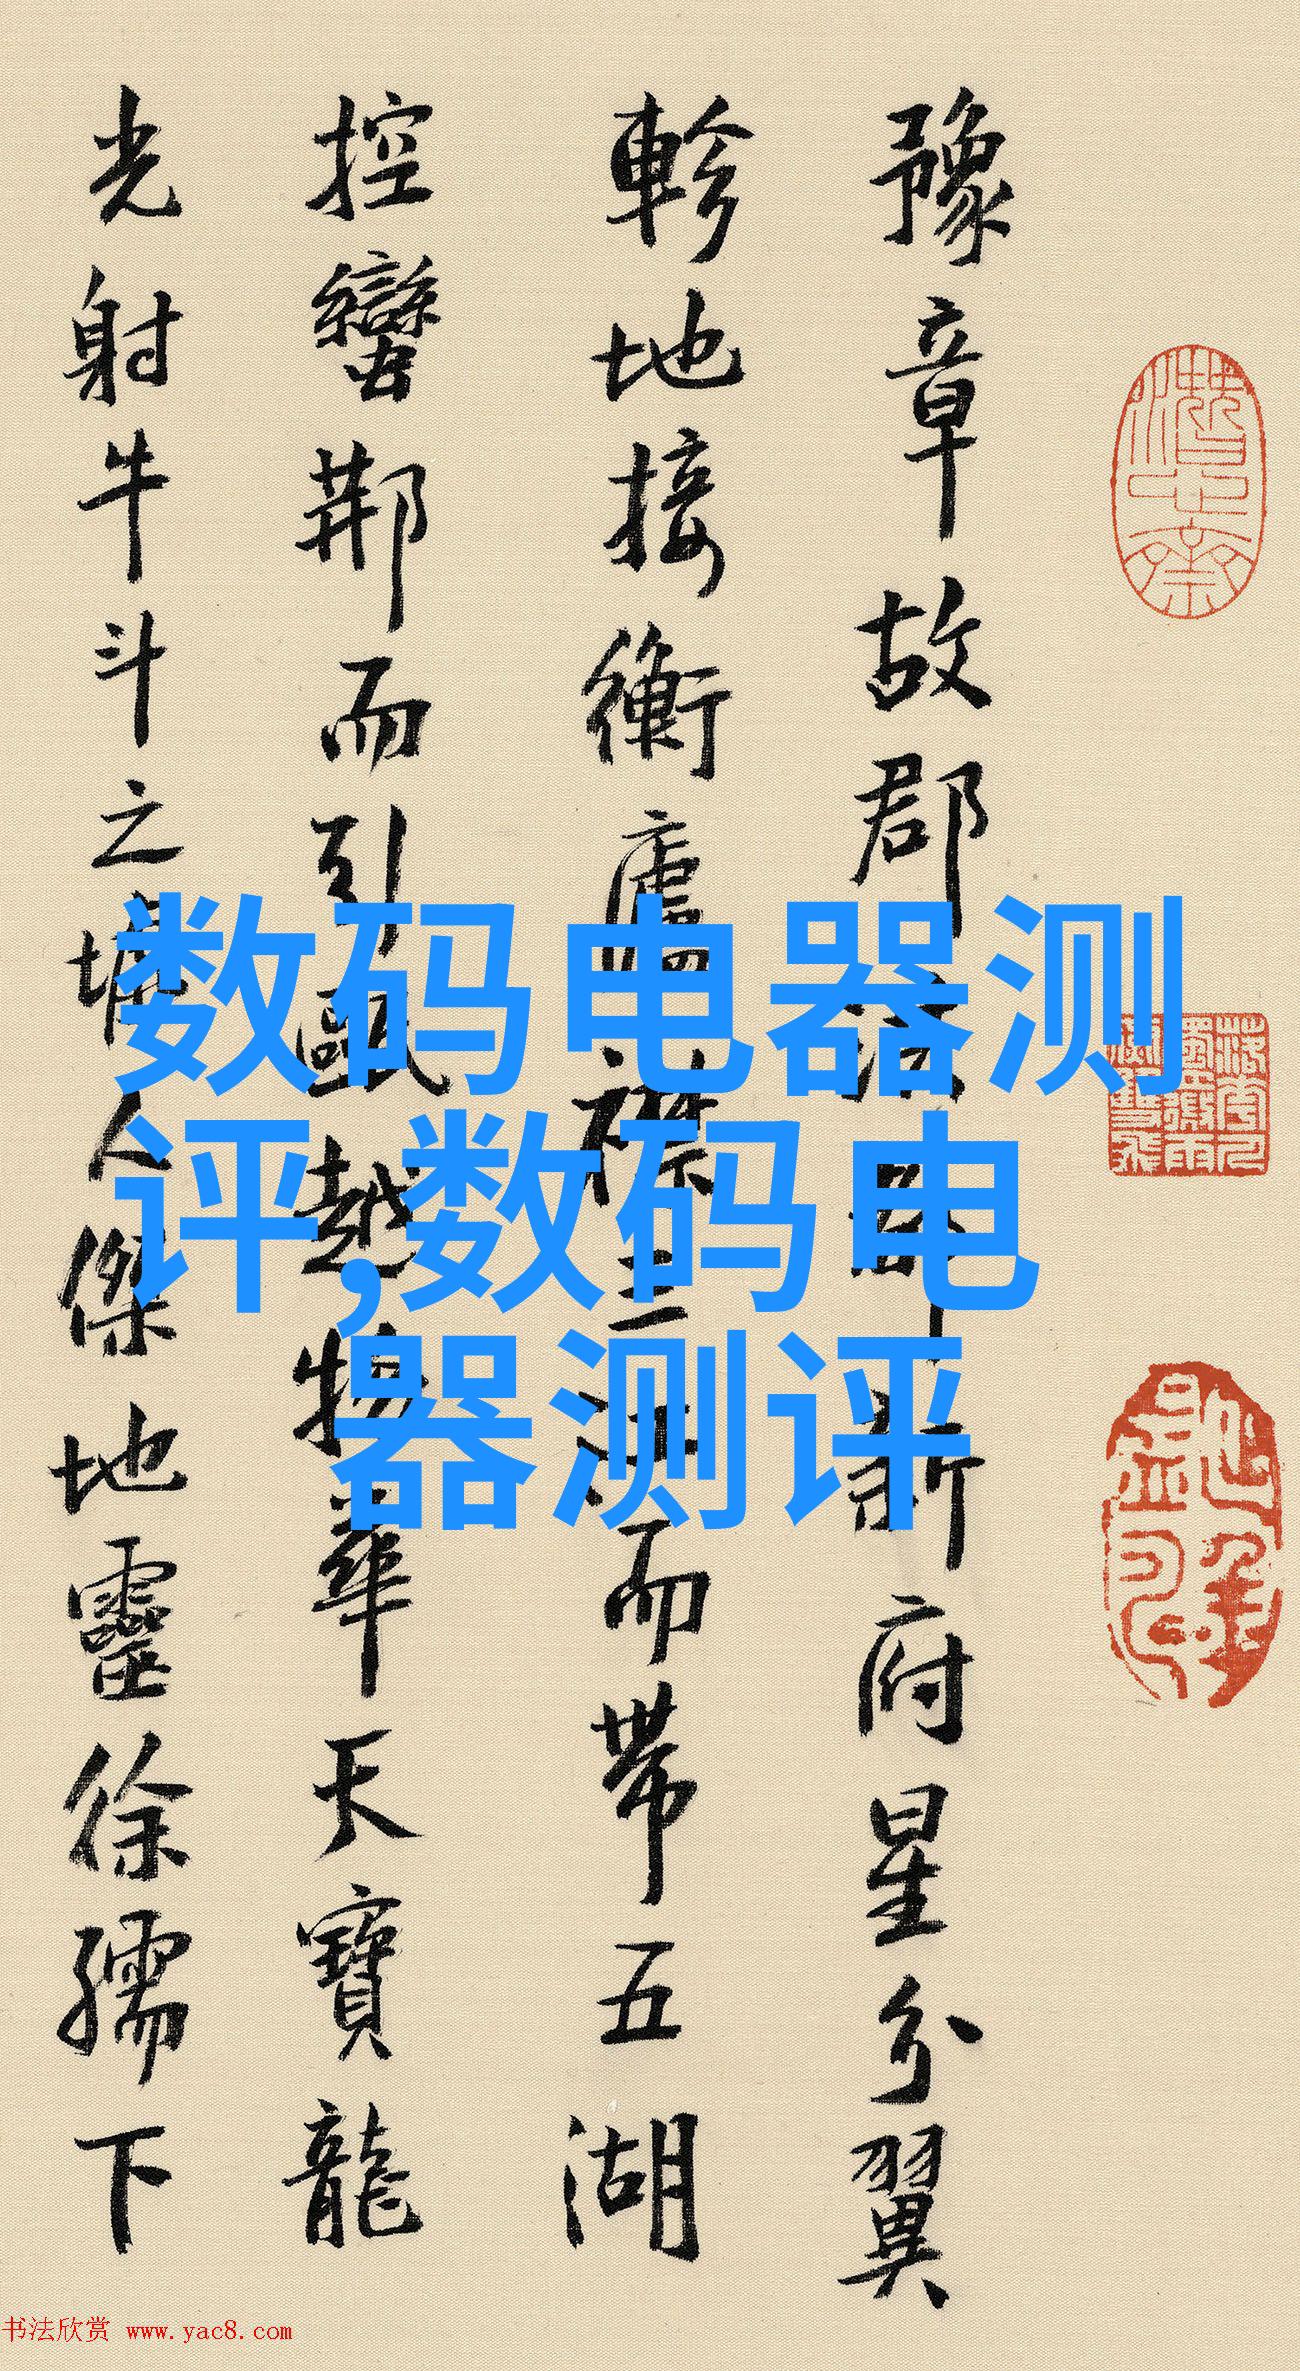 豫章故郡洪都新府星分翼
軫地接衡廬襟三江而帶五湖
控蠻荆而引甌越物華天寶龍
光射牛斗之墟人傑地靈徐孺下
数码电器测
评,数码电
器测评
书法欣赏 www.yac8.com